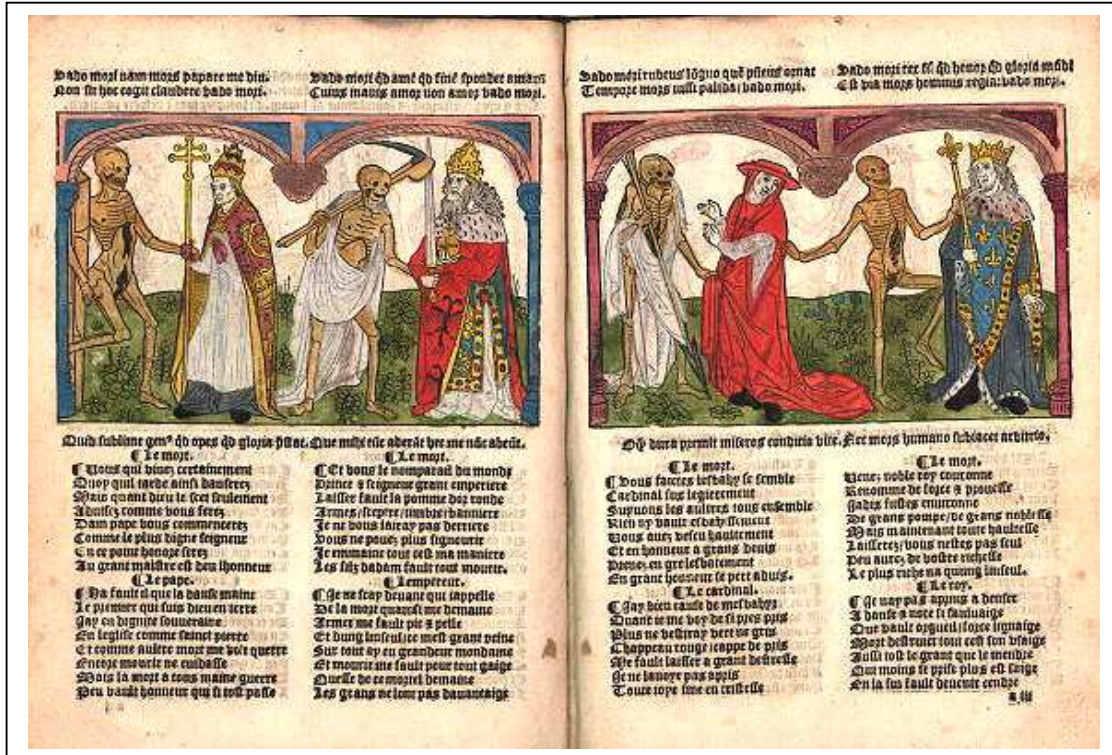 Vado mori nam mors papare me diu.
Non sit hoc cogit claudere vado mori.
Vado mori qd amē qd finē spondet amari
Cuius mavis amor non amor vado mori.
Quid sublime genꝰ qd opes qd gloria pstat. Que mihi tūc aderāt hec me nūc abeūt.
Le mort.
Vous qui vivez certainement
Quoy quil tarde ainsi danserez
Mais quant dieu le scet seulement
Advisez comme vous ferez
Dam pape vous commencerez
Comme le plus digne seigneur
En ce point honore serez
Au grant maistre est deu lhonneur
Le pape.
Ha fault il que la danse maine
Le premier qui suis dieu en terre
Jay eu dignite souveraine
En leglise comme sainct pierre
Et comme aultre mort me vient querre
Encore mourir ne cuidasse
Mais la mort a tous maine guerre
Peu vault honneur qui si tost passe
Le mort.
Et vous le nompareil du monde
Prince & seigneur grant emperiere
Laisser fault la pomme dor ronde
Armes/sceptre/timbre/banniere
Je ne vous lairay pas derriere
Vous ne pouez plus signeurir
Je emmaine tout cest ma maniere
Les filz dadam fault tout mourir.
Lempereur.
Je ne scay devant qui iappelle
De la mort quainsi me demaine
Armer me fault pic & pelle
Et dung linseul ce mest grant peine
Sur tout ay eu grandeur mondaine
Et mourir me fault pour tout gaige
Quesse de ce mortel demaine
Les grans ne lont pas davantaige
Vado mori rubeus quē pileus ornat
Tempore mors pallida/vado mori.
Vado mori rex sū qd honor qd gloria mūdi
Est via mors hominis regia: vado mori.
dura premit miseros conditio vite. Nec mors humano subiacet arbitrio.
Le mort.
Vous faictes lesbahy se semble
Cardinal sus legierement
Suyvons les aultres tous ensemble
Rien ny vault esbahissement
Vous avez vescu haultement
Et en honneur a grans devis
Prenez en gre lesbatement
En grant honneur se pert advis.
Le cardinal.
Jay bien cause de mesbahyr
Quant ie me voy de si pres pris
Plus ne vestiray vert ne gris
Chappeau rouge/cappe de pris
Me fault laisser a grant destresse
Je ne lavoye pas apris
Toute ioye fine en tristesse
Le mort.
Venez noble roy couronne
Renomme de force & prouesse
Jadis fustes environne
De grans pompe/de grans noblesse
Mais maintenant toute haultesse
Laisserez/vous nestes pas seul
Peu aurez de vostre richesse
Le plus riche na quung linseul.
Le roy.
Je nay pas apprins a danser
A danse & note si sauvaige
Que vault orgueil/force lignaige
Mort destruit tout cest son usaige
Aussi tost le grant que le mendre
Qui moins se prise plus est saige
En la fin fault devenir cendre